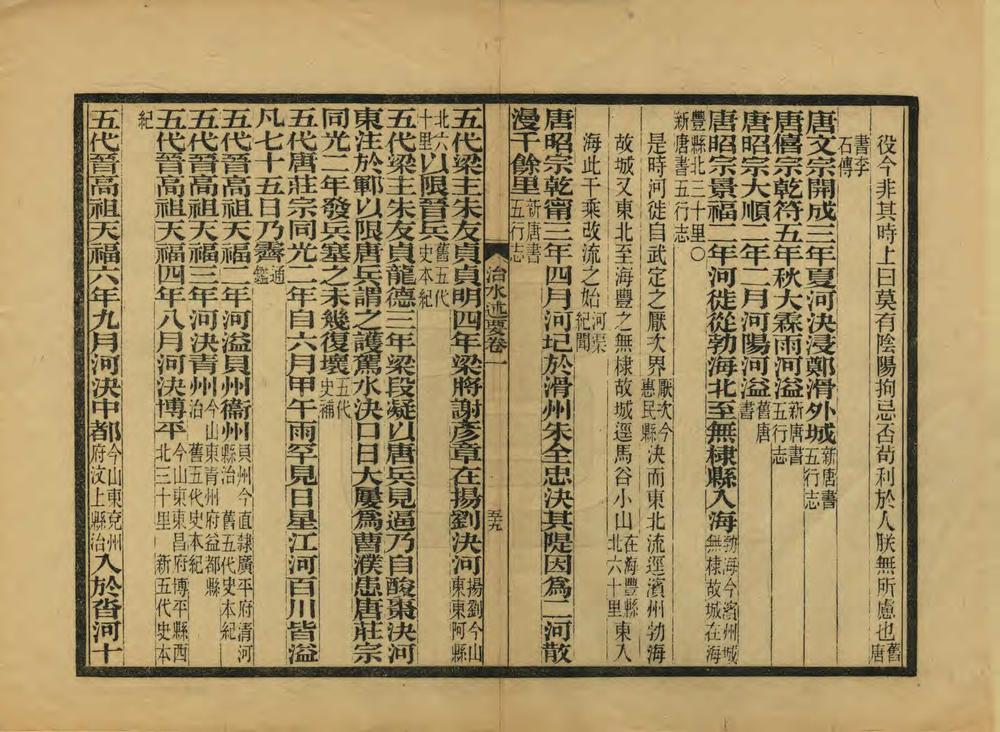 役今非其時上曰莫有陰陽拘忌否苟利於人朕無所慮也舊唐
書李石傳
唐文宗開成三年夏河決浸鄭滑外城新唐書五行志
唐僖宗乾符五年秋大霖雨河溢新唐書五行志
唐昭宗大順二年二月河陽河溢舊唐書
唐昭宗景福二年河徙從勃海北至無棣縣入海勃海今濱州城無棣故城在海
豐縣北三十里○新唐書五行志
是時河徙自武定之厭次界厭次今惠民縣決而東北流逕濱州勃海
故城又東北至海豐之無棣故城逕馬谷小山在海豐縣北六十里東入
海此千乘改流之始河渠紀聞
唐昭宗乾甯三年四月河圮於滑州朱全忠決其隄因爲二河散
漫千餘里新唐書五行志
治水述要卷一
五九
五代梁主朱友貞貞明四年梁將謝彥章在揚劉決河揚劉今山東東阿縣
北六十里以限晉兵舊五代史本紀
五代梁主朱友貞龍德三年梁段凝以唐兵見逼乃自酸棗決河
東注於鄆以限唐兵謂之護駕水決口日大屢爲曹濮患唐莊宗
同光二年發兵塞之未幾復壞五代史補
五代唐莊宗同光二年自六月甲午雨罕見日星江河百川皆溢
凡七十五日乃霽通鑑
五代晉高祖天福二年河溢貝州衞州貝州今直隸廣平府清河縣治 舊五代史本紀
五代晉高祖天福三年河決青州今山東青州府益都縣治 舊五代史本紀
五代晉高祖天福四年八月河決博平今山東東昌府博平縣西北三十里 新五代史本
紀
五代晉高祖天福六年九月河決中都今山東兗州府汶上縣治入於沓河十